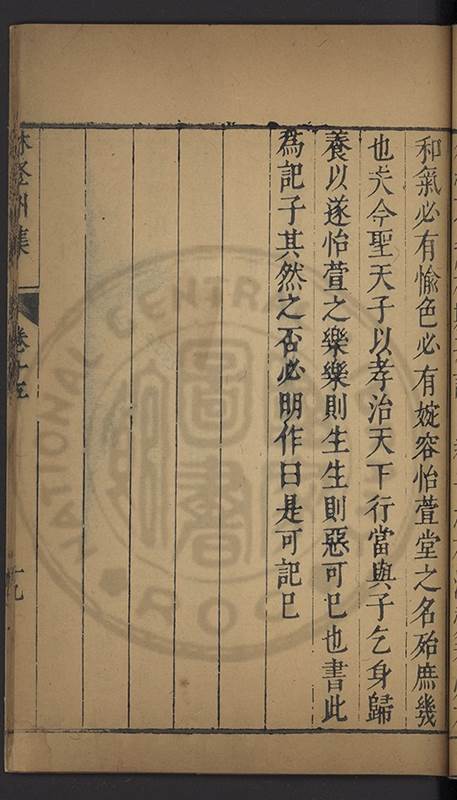 和氣必有愉色必有婉容怡萱堂之名殆庶幾
也夫今聖天子以孝治天下行當與子乞身歸
養以遂怡萱之樂樂則生生則惡可已也書此
為記子其然之否必明作曰是可記已
林登州集
卷十五
十九
CENTRAL
NATIONAL
ROC
圖書